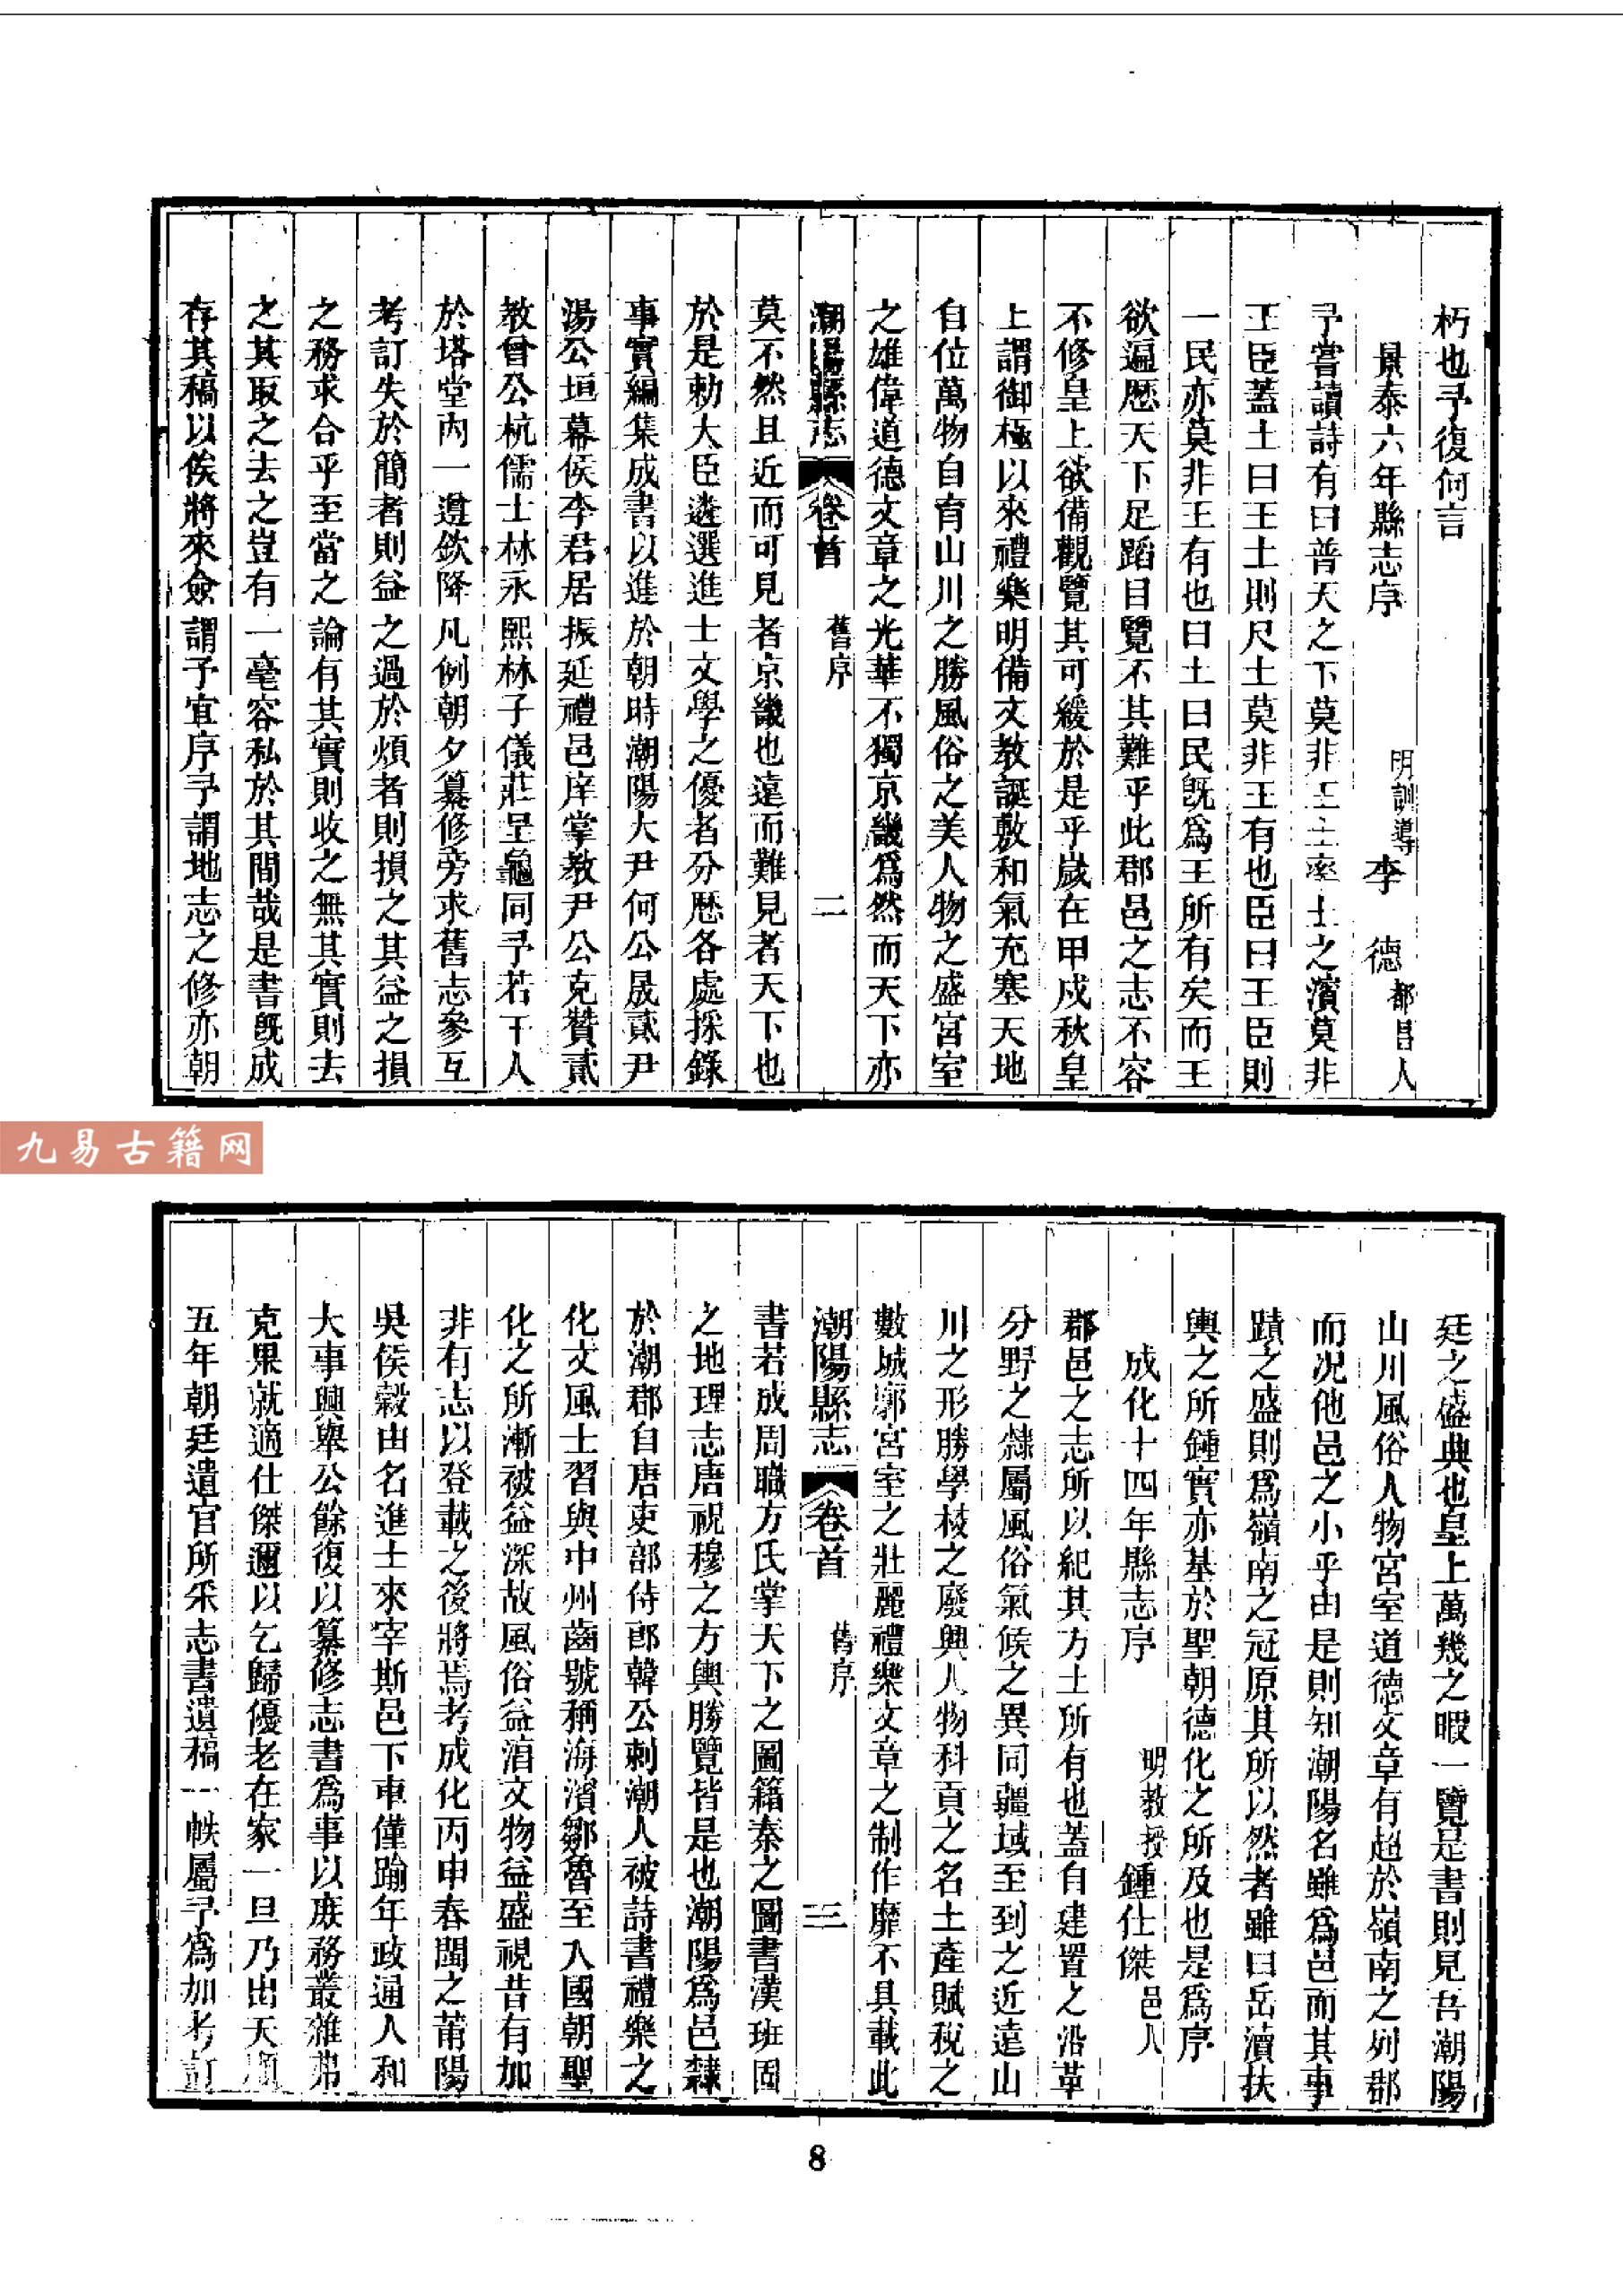 朽也予復何言
景泰六年縣志序 明訓導李 德都昌人
予嘗讀詩有曰普天之下莫非王土率土之濱莫非
王臣蓋土曰王土則尺土莫非王有也臣曰王臣則
一民亦莫非王有也曰土曰民旣爲王所有矣而王
欲遍厯天下足蹈目覽不其難乎此郡邑之志不容
不修皇上欲備觀覽其可緩於是乎歲在甲戌秋皇
上謂御極以來禮樂明備文教誕敷和氣充塞天地
自位萬物自育山川之勝風俗之美人物之盛宮室
之雄偉道德文章之光華不獨京畿爲然而天下亦
潮陽縣志 卷首 舊序 二
莫不然且近而可見者京畿也遠而難見者天下也
於是勅大臣遴選進士文學之優者分厯各處採錄
事實編集成書以進於朝時潮陽大尹何公晟貳尹
湯公垣幕侯李君居振延禮邑庠掌教尹公克贊貳
教曾公杭儒士林永熙林子儀莊呈龜同予若干人
於塔堂內一遵欽降凡例朝夕纂修旁求舊志參互
考訂失於簡者則益之過於煩者則損之其益之損
之務求合乎至當之論有其實則收之無其實則去
之其取之去之豈有一毫容私於其間哉是書旣成
存其稿以俟將來僉謂予宜序予謂地志之修亦朝
廷之盛典也皇上萬幾之暇一覽是書則見吾潮陽
山川風俗人物宮室道德文章有超於嶺南之列郡
而况他邑之小乎由是則知潮陽名雖爲邑而其事
蹟之盛則爲嶺南之冠原其所以然者雖曰岳瀆扶
輿之所鍾實亦基於聖朝德化之所及也是爲序
成化十四年縣志序 明教授鍾仕傑邑人
郡邑之志所以紀其方土所有也蓋自建置之沿革
分野之隸屬風俗氣候之異同疆域至到之近遠山
川之形勝學校之廢興人物科貢之名土產賦稅之
數城廓宮室之壯麗禮樂文章之制作靡不具載此
潮陽縣志 卷首 舊序 三
書若成周職方氏掌天下之圖籍秦之圖書漢班固
之地理志唐祝穆之方輿勝覽皆是也潮陽爲邑隸
於潮郡自唐吏部侍郎韓公刺潮人被詩書禮樂之
化文風士習與中州齒號稱海濱鄒魯至入國朝聖
化之所漸被益深故風俗益淳文物益盛視昔有加
非有志以登載之後將焉考成化丙申春閩之莆陽
吳侯穀由名進士來宰斯邑下車僅踰年政通人和
大事興舉公餘復以纂修志書爲事以庶務叢雜弗
克果就適仕傑邇以乞歸優老在家一旦乃出天順
五年朝廷遣官所采志書遺稿一帙屬予爲加考訂
8
九易古籍网